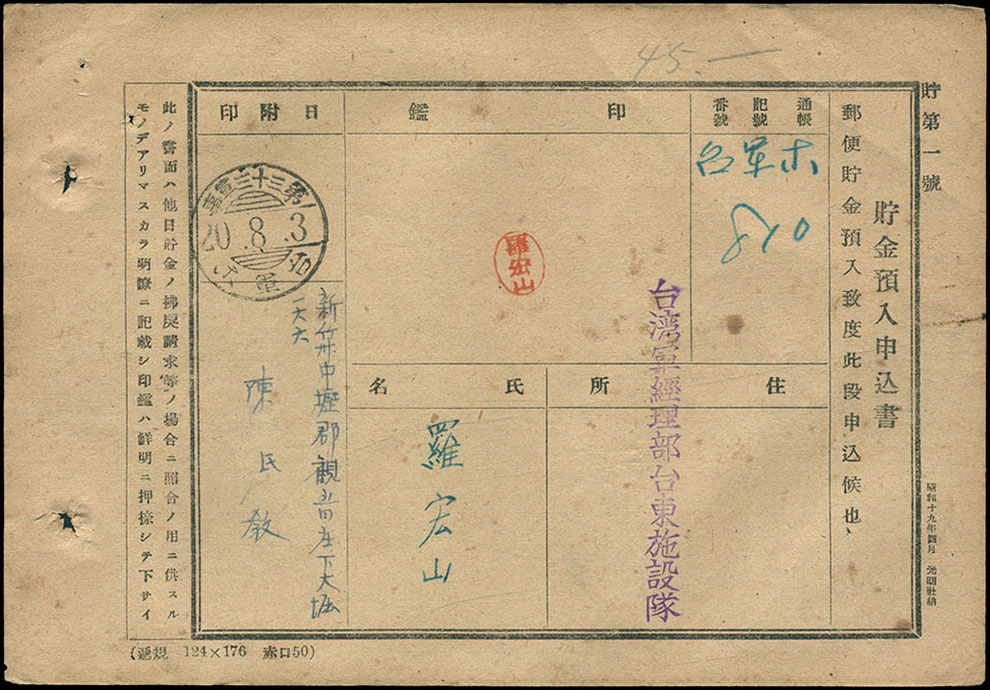 45.—
貯第一號
貯金預入申込書
郵便貯金預入致度此段申込候也
昭和十九年四月 光明社納
通帳
記號
番號
台軍ホ
810
印鑑
羅宏山
日附印
第三十三
20.8.3
台軍
住所
台湾軍經理部台東施設隊
氏名
羅宏山
新竹州中壢郡観音庄下大堀
陳民教
此ノ書面ハ他日貯金ノ拂戻請求等ノ場合ニ照合ノ用ニ供スル
モノデアリマスカラ明瞭ニ記載シ印鑑ハ鮮明ニ押捺シテ下サイ
(逓規 124×176 赤口50)